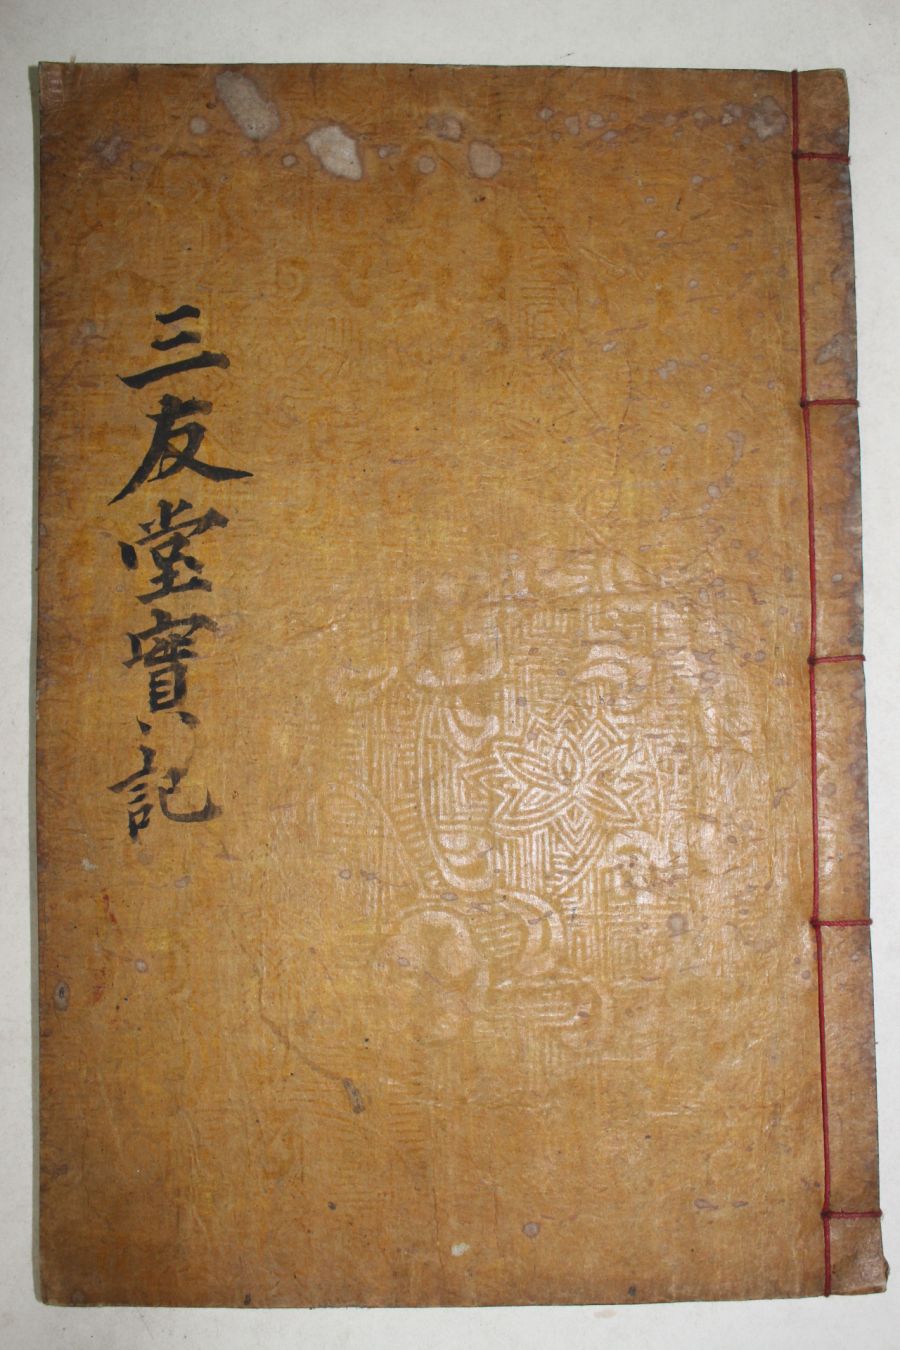 三友堂實記